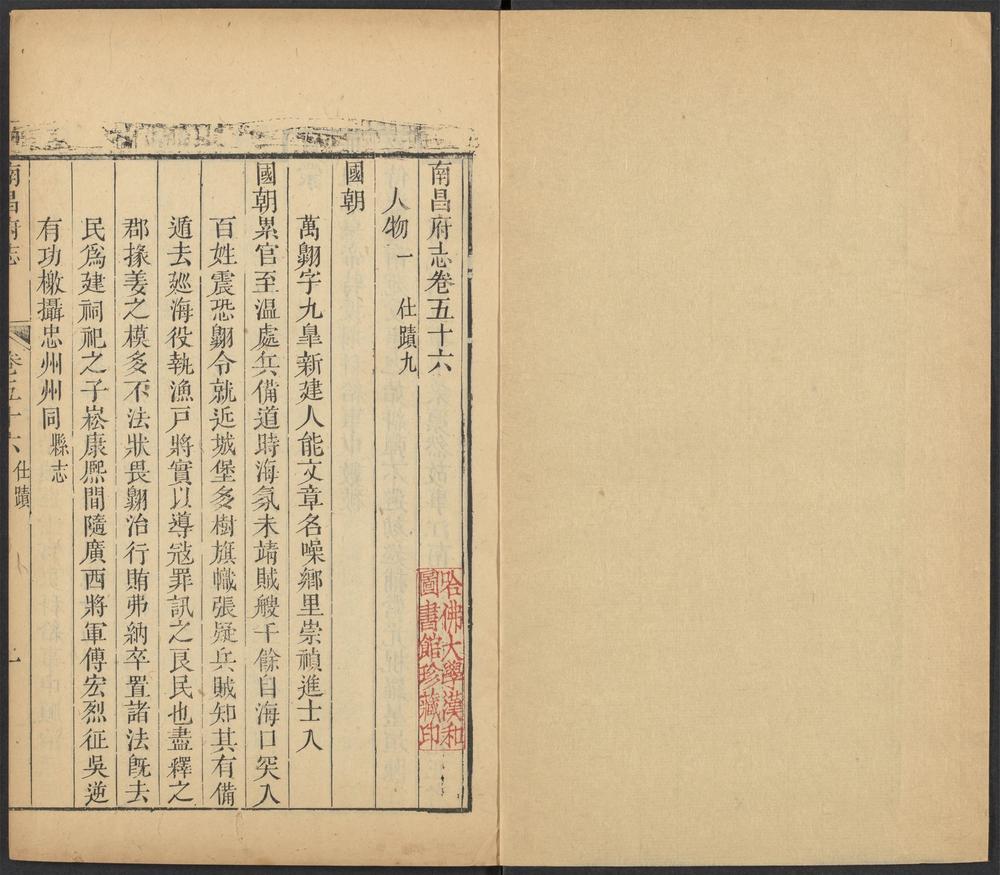 南昌府志卷五十六
人物一 仕蹟九
國朝
萬翺字九臯新建人能文章名噪鄉里崇禎進士入
國朝累官至溫處兵備道時海氛未靖賊艘千餘自海口突入
百姓震恐翺令就近城堡多樹旗幟張疑兵賊知其有備
遁去廵海役執漁戶將實以導寇罪訊之良民也盡釋之
郡掾姜之模多不法狀畏翺治行賄弗納卒置諸法旣去
民爲建祠祀之子崧康熈間隨廣西將軍傅宏烈征吳逆
有功檄攝忠州州同 縣志
南昌府志 卷五十六 仕蹟 一
哈佛大學漢和
圖書館珍藏印